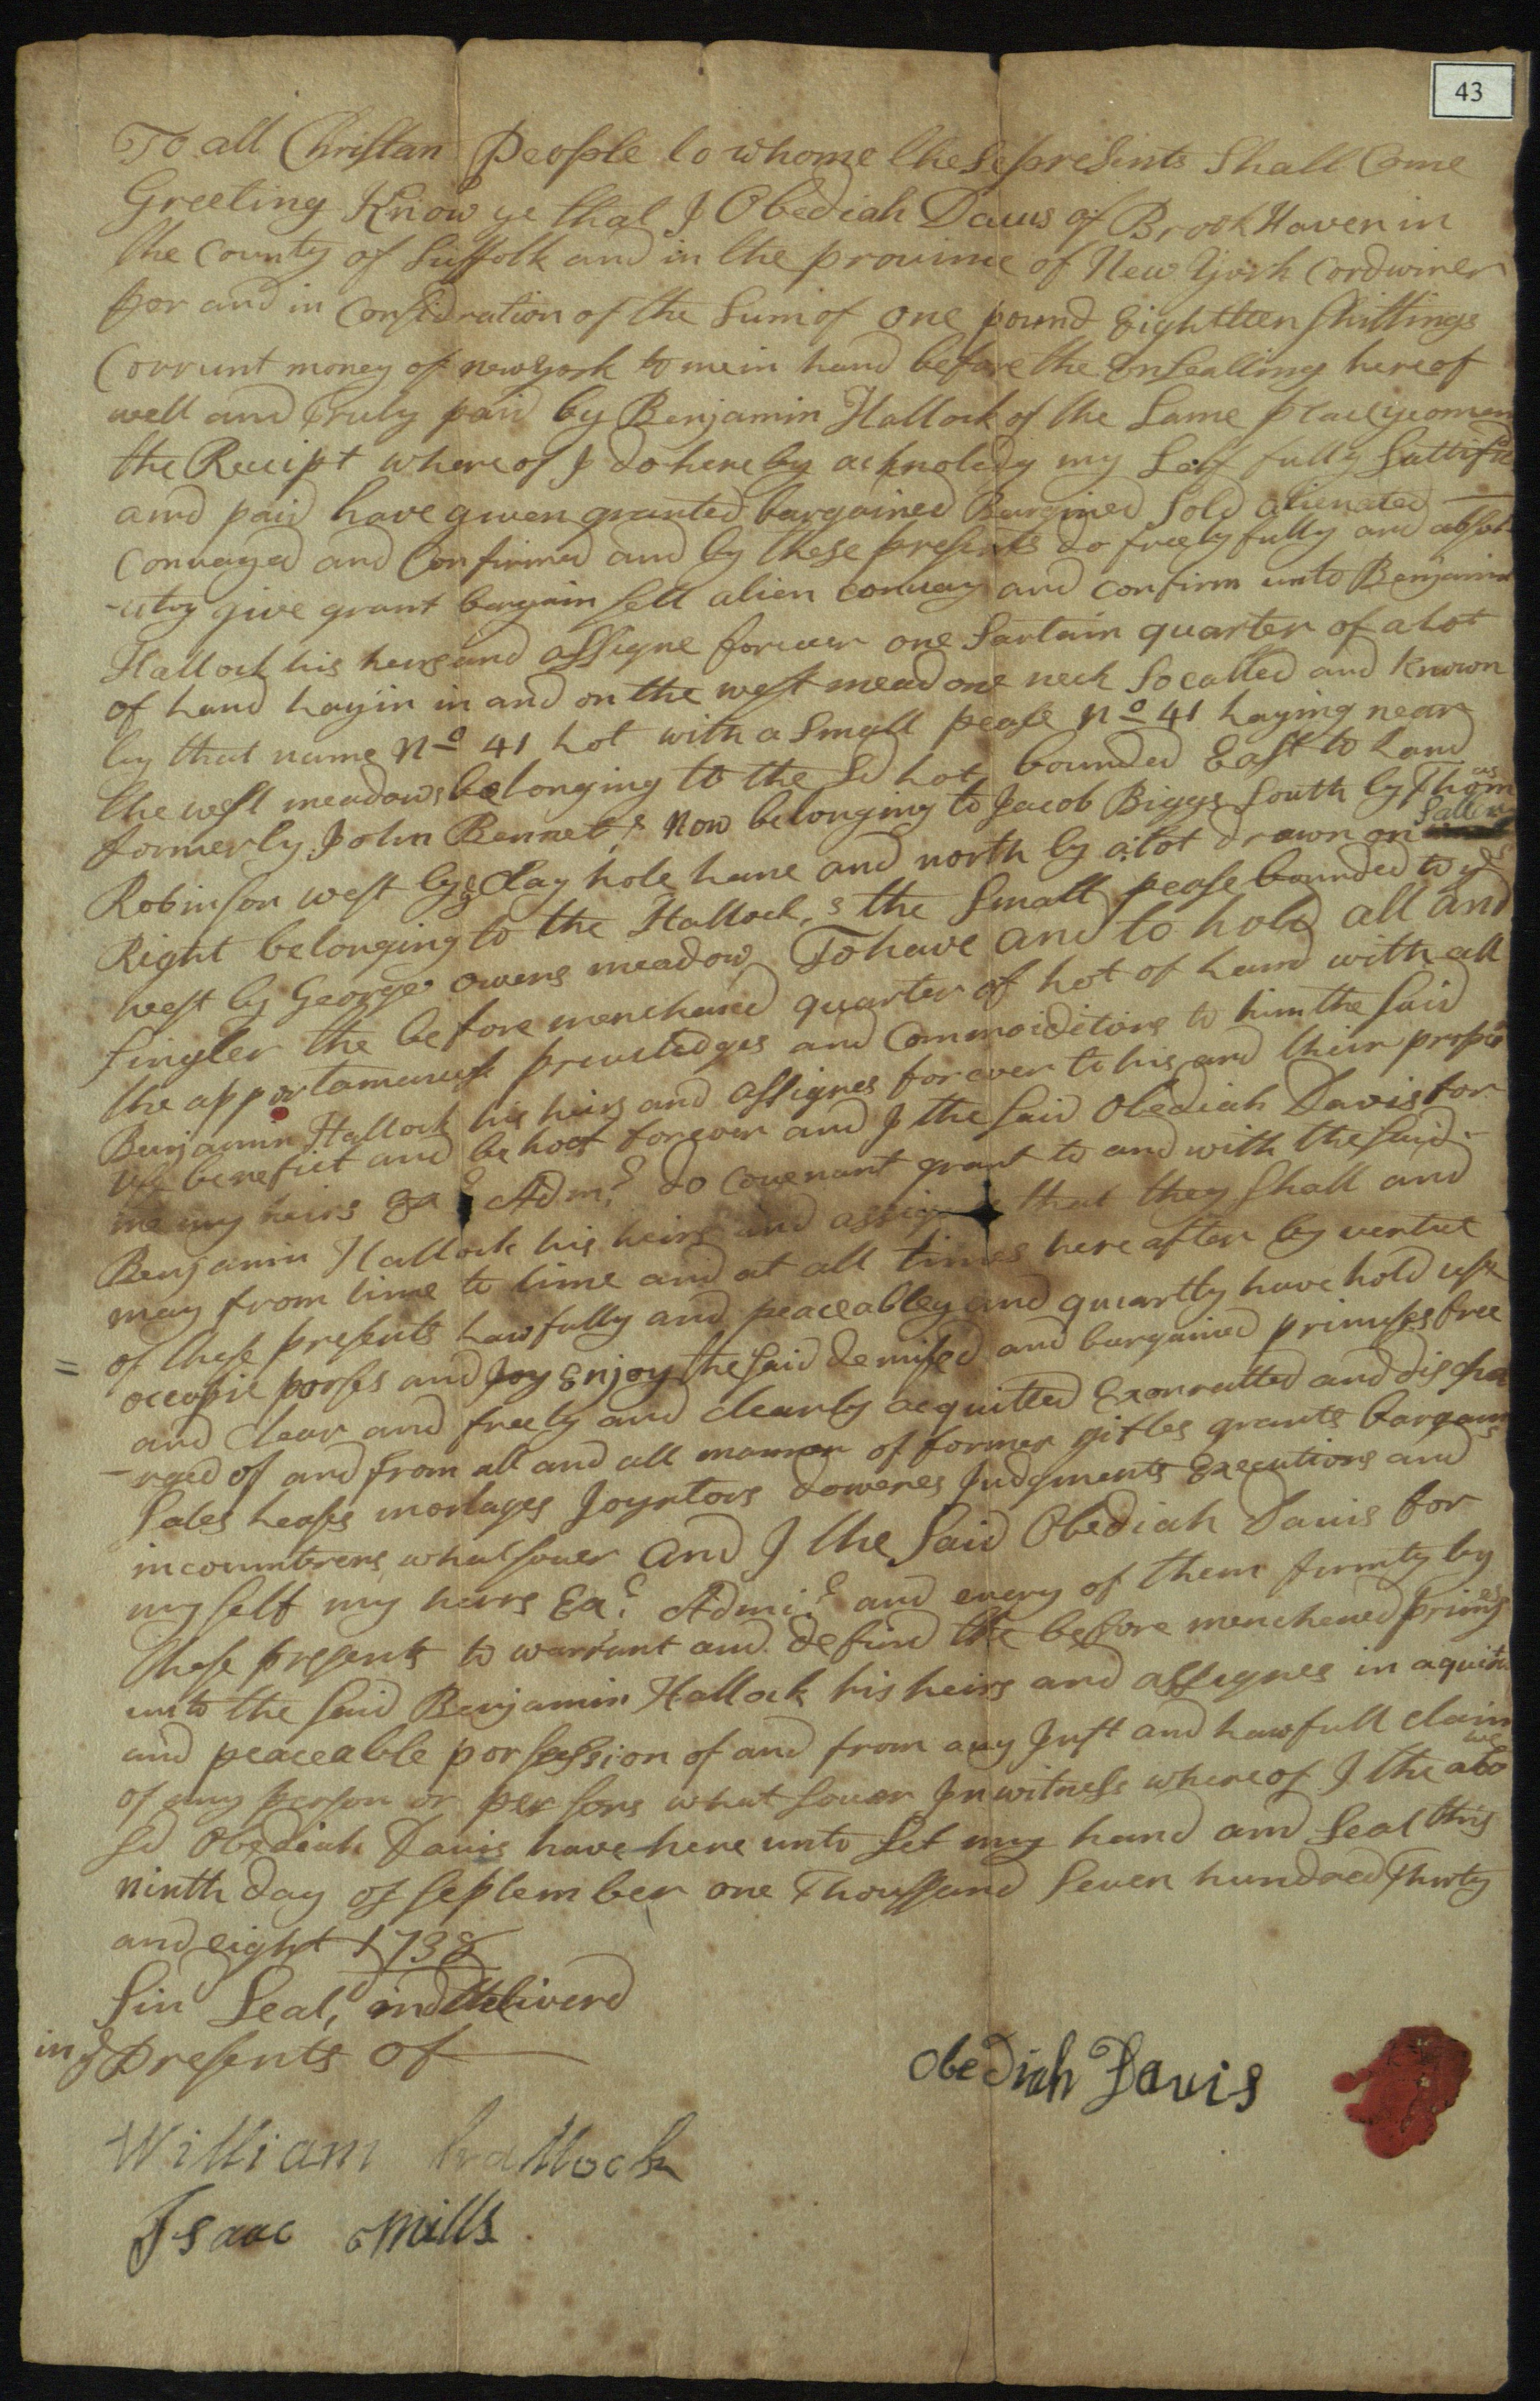 43
To all Christan People to whome these presents Shall Come
Greeting Know ye that I Obediah Davis of Brook Haven in
the County of Suffolk and in the province of New York Cordwiner
for and in Considration of the Sum of one pound Eightteen Shillings
Corrunt money of newyork to me in hand before the Ensealling hereof
well and truly paid by Benjamin Hallock of the Same place yeoman
the Receipt whereof I do hereby acknoledg my Self fully Sattifid
and paid have given granted bargained Bargined Sold alienated
Convayed and Confirmed and by these presents do freely fully and absol
-utly give grant bargain sell alien convay and confirm unto Benjamin
Hallock his heirs and assigne forever one Sartain quarter of a Lot
of Land Layin in and on the west meadow neck So called and Known
by that name No 41 Lot with a Small pease No 41 Laying near
the west meadows belonging to the Sd Lot bounded East to Land
formerly John Bennet,s Now belonging to Jacob Biggs South by Thomas
Robinson west by ye Clay hole Lane and north by a Lot drawn on
Right belonging to the Hallock,s the Small pease bounded to ye
west by George Owens meadow To have and to hold all and
singler the before menchened quarter of Lot of Land with all
the apportanances priviledges and Commoiditions to him the Said
Benjamin Hallock his heirs and assignes forever to his and their proper
use benefict and behoof forever and I the Said Obediah Davis for
me my heirs Ex Adm do Covenant grant to and with the said
Benjamin Hallock his heirs and assigns that they Shall and
may from time to time and at all times here after by vertue
of these presents Lawfully and peaceabley and quiartly have hold use
= occupie porses and Joy Enjoy the Said demised and bargained primeses free
and Clear and freely and clearly acquitted Exonratted and discha
-rged of and from all and all manner of former giftes grants bargains
Sales Leases mortages Joyntors doweres Judgments Executions and
incoumbrens whatsouer And I the Said Obediah Davis for
my self my heirs Ex Admi and every of them firmly by
these presents to warrant and defind the before menchened primeses
unto the said Benjamin Hallock his heirs and assignes in a quiet
and peaceable porsession of and from any Just and Lawfull claim
of any person or persons what souer In witness whereof I the above
sd Obediah Davis have here unto Set my hand and Seal this
ninth day of September one Thoussand Seven hundred Thirty
and eight 1738
Sin Seal, and deliverd
in ye Presents of
Obediah Davis
William hallock
Isaac Mills